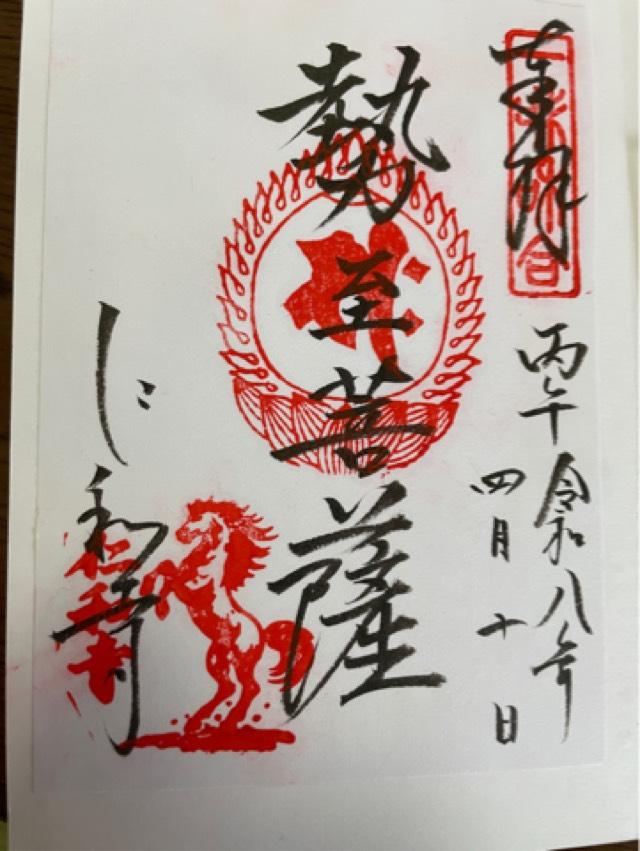 奉拝
丙午 令和八年
四月十日
勢至菩薩
仁和寺